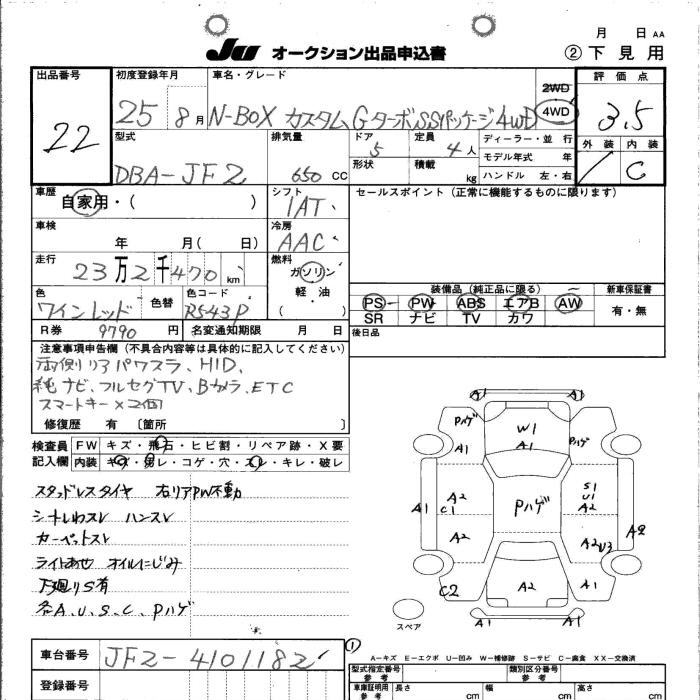 JU オークション出品申込書
月 日 AA
② 下見用
出品番号 初度登録年月 車名・グレード
22
25 8月 N-BOX カスタム GターボSSパッケージ4WD
2WD
4WD
評価点
3.5
外装 内装
C
型式 排気量 ドア 定員 ディーラー・並行
DBA-JF2 650 CC 5 4人
形状 積載 kg
モデル年式 年
ハンドル 左・右
車歴 シフト セールスポイント(正常に機能するものに限ります)
自家用・( ) 1AT
車検 冷房
年 月( 日) AAC
走行 燃料
23万2千470km ガソリン
軽・油
( )
色 色替 色コード
ワインレッド R543P
装備品(純正品に限る) 新車保証書
PS PW ABS エアB AW
SR ナビ TV カワ
有・無
R券 9790円 名変通知期限 月 日
後日品
注意事項申告欄(不具合内容等は具体的に記入してください)
両側リアパワスラ、HID、
純ナビ、フルセグTV、Bカメラ、ETC
スマートキー×2個
修復歴 有〔箇所 〕
検査員 FW キズ・飛石・ヒビ割・リペア跡・X要
記入欄 内装 キズ・汚レ・コゲ・穴・スレ・キレ・破レ
スタッドレスタイヤ 右リアPW不動
シートしわスレ ハンスレ
カーペットスレ
ライトあせ オイルにじみ
下廻りS有
各A、U、S、C、Pハゲ
A1
Pハゲ W1 Pハゲ
A1 A1 A1
A1 A2 C1 Pハゲ S1 U1 A2
A2 A2 U3 A2
C2 A2 A1
A1 A1
スペア
①
A-キズ E-エクボ U-凹み W-補修跡 S-サビ C-腐食 XX-交換済
車台番号 JF2-4101182
登録番号
型式指定番号 参考 類別区分番号 参考
車庫証明用 参考 長さ cm 幅 cm 高さ cm